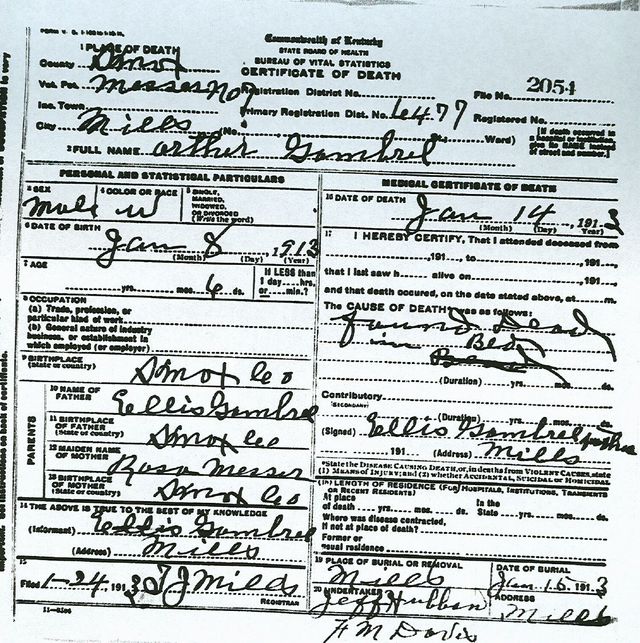 Commonwealth of Kentucky
STATE BOARD OF HEALTH
BUREAU OF VITAL STATISTICS
CERTIFICATE OF DEATH
1 PLACE OF DEATH
County Knox
Vot. Pct. Messer No 7 Registration District No. File No. 2054
Inc. Town Primary Registration Dist. No. 6477 Registered No.
City Mills (No. Ward) [If death occurred in a hospital or institution, give its NAME instead of street and number.]
2 FULL NAME Arther Gambrel
PERSONAL AND STATISTICAL PARTICULARS
3 SEX Male
4 COLOR OR RACE W
5 SINGLE, MARRIED, WIDOWED, OR DIVORCED (Write the word)
6 DATE OF BIRTH Jan 8, 1913
(Month) (Day) (Year)
7 AGE yrs. mos. 6 ds. If LESS than 1 day hrs. or min.?
8 OCCUPATION
(a) Trade, profession, or particular kind of work
(b) General nature of industry business, or establishment in which employed (or employer)
9 BIRTHPLACE (State or country) Knox Co
PARENTS
10 NAME OF FATHER Ellis Gambrel
11 BIRTHPLACE OF FATHER (State or country) Knox Co
12 MAIDEN NAME OF MOTHER Rosa Messer
13 BIRTHPLACE OF MOTHER (State or country) Knox Co
14 THE ABOVE IS TRUE TO THE BEST OF MY KNOWLEDGE
(Informant) Ellis Gambrel
(Address) Mills
15
Filed 1-24, 1913 T J Mills
REGISTRAR
MEDICAL CERTIFICATE OF DEATH
16 DATE OF DEATH Jan 14, 1913
(Month) (Day) (Year)
17 I HEREBY CERTIFY, That I attended deceased from
, 191, to , 191,
that I last saw h alive on , 191,
and that death occured, on the date stated above, at m.
The CAUSE OF DEATH was as follows:
found Dead
in Bed
(Duration) yrs. mos. ds.
Contributory
(SECONDARY)
(Duration) yrs. mos. ds.
(Signed) Ellis Gambrel
191 (Address) Mills
*State the DISEASE CAUSING DEATH, or, in deaths from VIOLENT CAUSES, state (1) MEANS OF INJURY; and (2) whether ACCIDENTAL, SUICIDAL or HOMICIDAL
18 LENGTH OF RESIDENCE (FOR HOSPITALS, INSTITUTIONS, TRANSIENTS OR RECENT RESIDENTS)
At place of death yrs. mos. ds. In the State yrs. mos. ds.
Where was disease contracted, if not at place of death?
Former or usual residence
19 PLACE OF BURIAL OR REMOVAL Mills
DATE OF BURIAL Jan 15, 1913
20 UNDERTAKER Jeff Hubbard
ADDRESS Mills
F M Davis